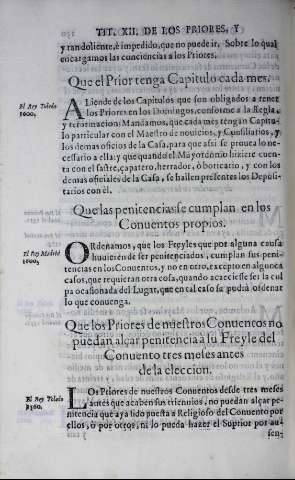 TIT. XII. DE LOS PRIORES, Y
y tan doliente, è impedido, que no puede ir. Sobre lo qual
encargamos las conciencias à los Priores.
Que el Prior tenga Capitulo cada mes.
El Rey Toledo
1600,
ALiende de los Capitulos que son obligados à tener
los Priores en los Domingos, conforme a la Regla,
y reformacion: Mandamos, que cada mes tengan Capitu-
lo particular con el Maestro de novicios, y Consiliarios, y
los demas oficios de la Casa, para que assi se provea lo ne-
cessario a ella: y que quando el Mayordomo hiziere cuen-
ta con el sastre, çapatero, herrador, ò boticario, y con los
demas oficiales de la Casa, se hallen presentes los Deposi-
tarios con èl.
Que las penitencias se cumplan en los
Conventos propios.
El Rey Madrid
ORdenamos, que los Freyles que por alguna causa
huvieren de ser penitenciados, cumplan sus peni-
tencias en los Conventos, y no en otro, excepto en algunos
casos, que requieran otra cosa, quando acaeciesse ser la cul
pa ocasionada del Lugar, que en tal caso se pudrà ordenar
lo que convenga.
Que los Priores de nuestros Conventos no
puedan alçar penitencia à su Freyle del
Convento tres meses antes
de la eleccion.
El Rey Toledo
1560.
LOs Priores de nuestros Conventos desde tres meses
antes que acaben sus triennios, no puedan alçar pe-
nitencia que aya sido puesta à Religioso del Convento por
ellos, ò por otros, ni lo pueda hazer el Suprior por au-
sen-